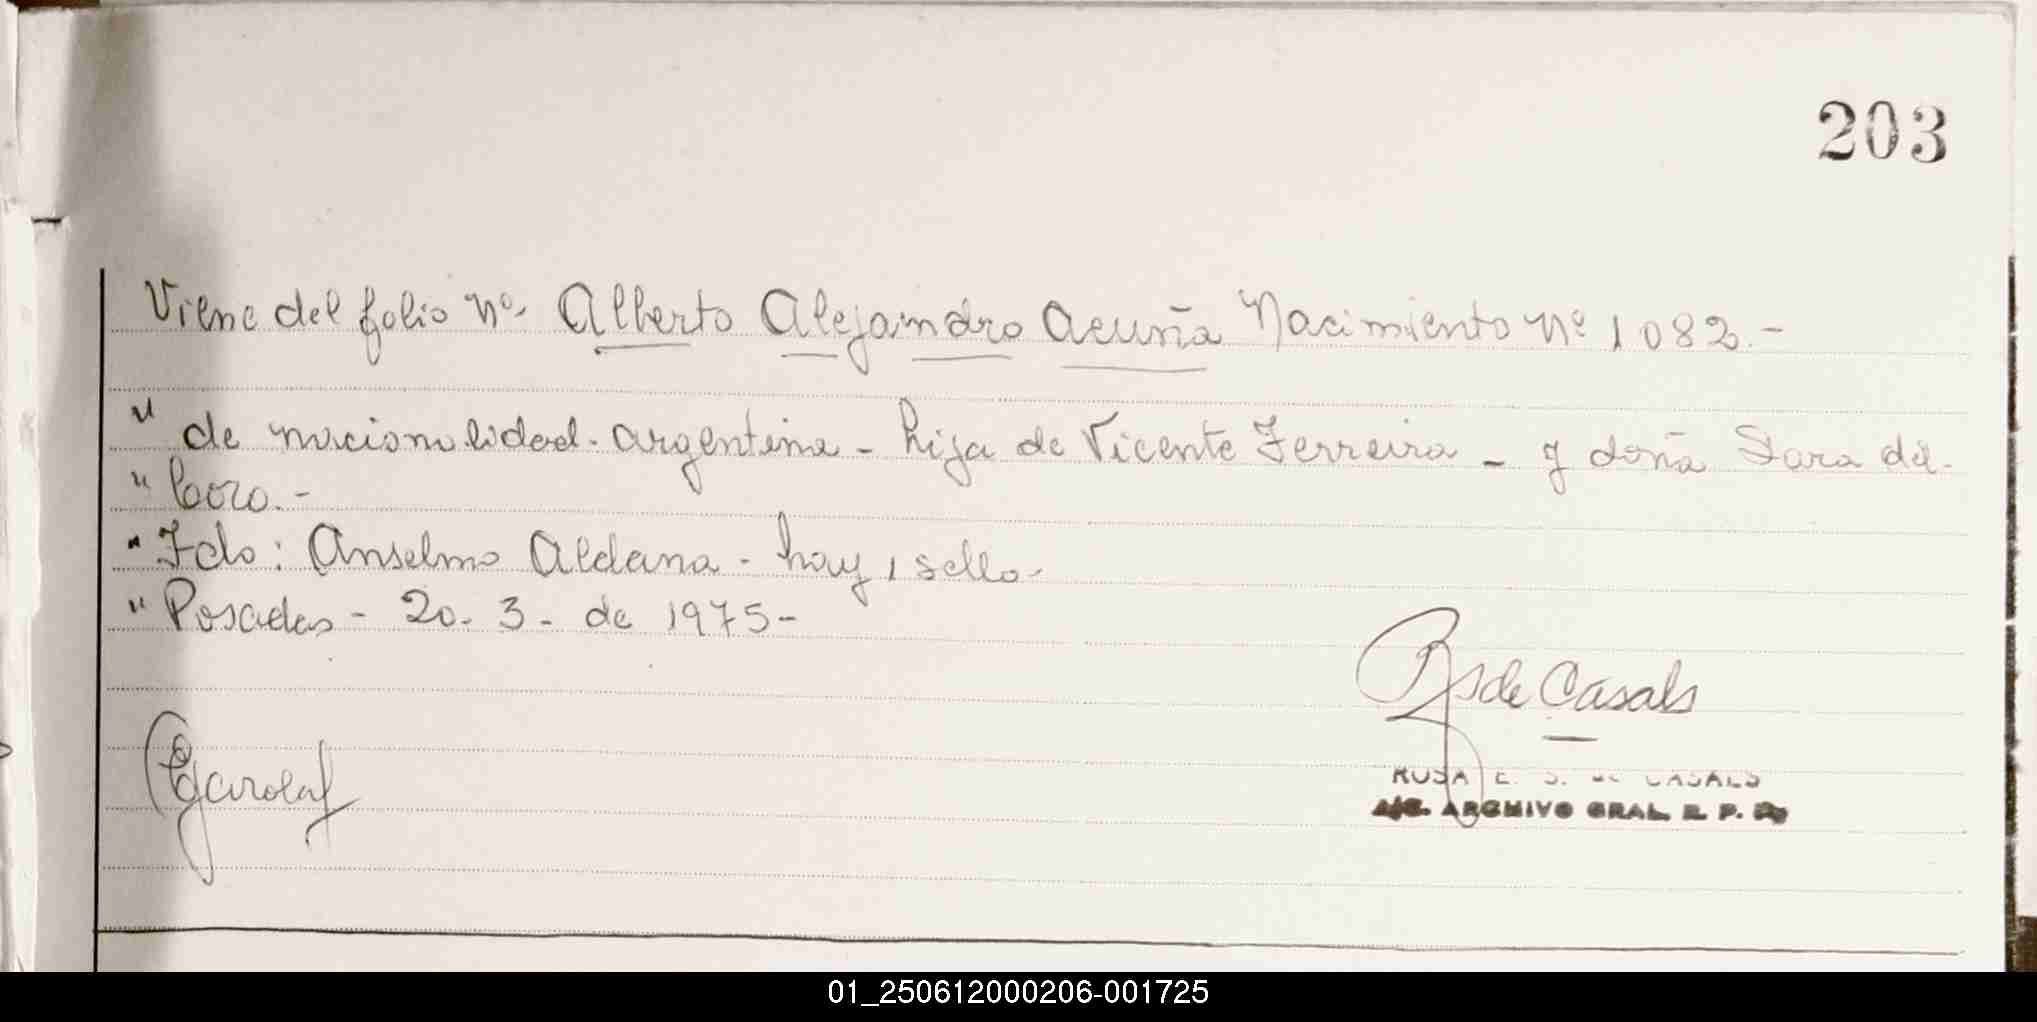 203
Viene del folio Nº. Alberto Alejandro Acuña Nacimiento Nº 1082.-
" de nacionalidad. argentina - hija de Vicente Ferreira - y doña Sara del-
" Coro.-
" Fdo: Anselmo Aldana - hay 1 sello-
" Posadas - 20. 3 - de 1975-
de Casals
ROSA E. S. de CASALS
A/C. ARCHIVO GRAL. R. P. P.
01_250612000206-001725